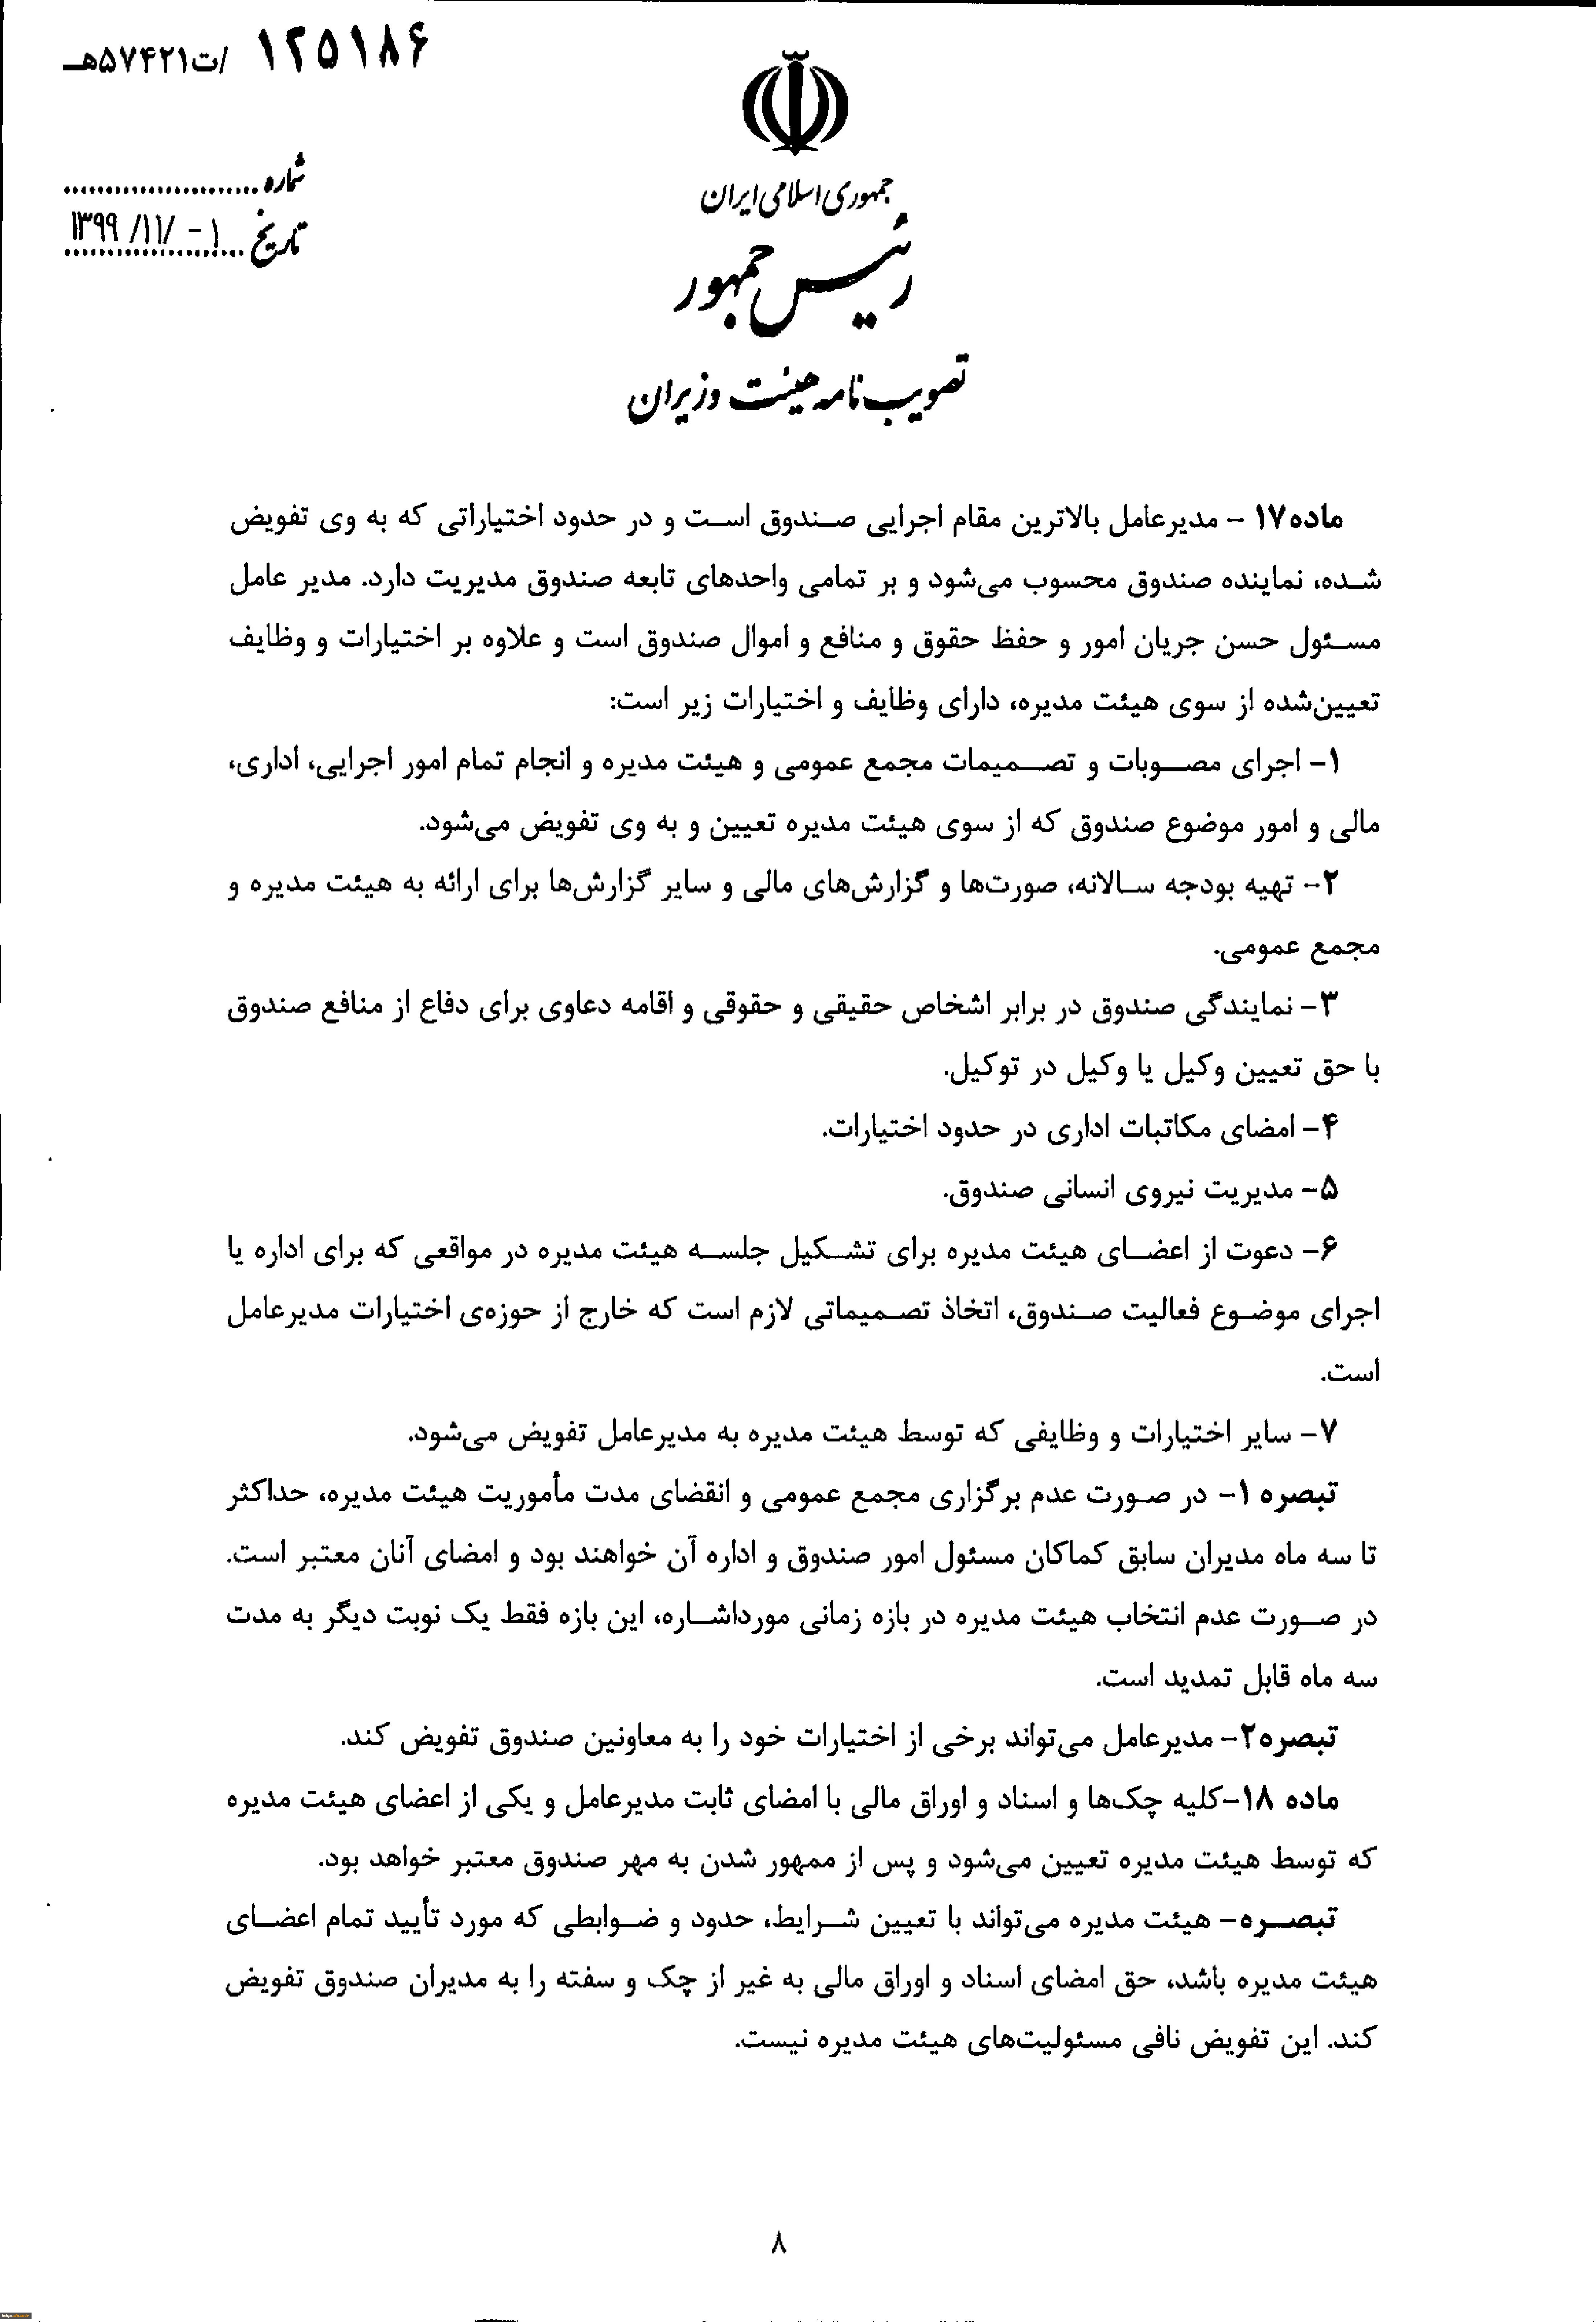 ۱۲۵۱۸۶ /ت۵۷۴۲۱هـ
جمهوری اسلامی ایران
رئیس جمهور
تصویب نامه هیئت وزیران
شماره
تاریخ ۱۳۹۹/۱۱/-۱
ماده۱۷ - مدیرعامل بالاترین مقام اجرایی صندوق است و در حدود اختیاراتی که به وی تفویض
شده، نماینده صندوق محسوب می‌شود و بر تمامی واحدهای تابعه صندوق مدیریت دارد. مدیر عامل
مسئول حسن جریان امور و حفظ حقوق و منافع و اموال صندوق است و علاوه بر اختیارات و وظایف
تعیین‌شده از سوی هیئت مدیره، دارای وظایف و اختیارات زیر است:
۱- اجرای مصوبات و تصمیمات مجمع عمومی و هیئت مدیره و انجام تمام امور اجرایی، اداری،
مالی و امور موضوع صندوق که از سوی هیئت مدیره تعیین و به وی تفویض می‌شود.
۲- تهیه بودجه سالانه، صورت‌ها و گزارش‌های مالی و سایر گزارش‌ها برای ارائه به هیئت مدیره و
مجمع عمومی.
۳- نمایندگی صندوق در برابر اشخاص حقیقی و حقوقی و اقامه دعاوی برای دفاع از منافع صندوق
با حق تعیین وکیل یا وکیل در توکیل.
۴- امضای مکاتبات اداری در حدود اختیارات.
۵- مدیریت نیروی انسانی صندوق.
۶- دعوت از اعضای هیئت مدیره برای تشکیل جلسه هیئت مدیره در مواقعی که برای اداره یا
اجرای موضوع فعالیت صندوق، اتخاذ تصمیماتی لازم است که خارج از حوزه‌ی اختیارات مدیرعامل
است.
۷- سایر اختیارات و وظایفی که توسط هیئت مدیره به مدیرعامل تفویض می‌شود.
تبصره ۱- در صورت عدم برگزاری مجمع عمومی و انقضای مدت مأموریت هیئت مدیره، حداکثر
تا سه ماه مدیران سابق کماکان مسئول امور صندوق و اداره آن خواهند بود و امضای آنان معتبر است.
در صورت عدم انتخاب هیئت مدیره در بازه زمانی مورداشاره، این بازه فقط یک نوبت دیگر به مدت
سه ماه قابل تمدید است.
تبصره۲- مدیرعامل می‌تواند برخی از اختیارات خود را به معاونین صندوق تفویض کند.
ماده ۱۸-کلیه چک‌ها و اسناد و اوراق مالی با امضای ثابت مدیرعامل و یکی از اعضای هیئت مدیره
که توسط هیئت مدیره تعیین می‌شود و پس از ممهور شدن به مهر صندوق معتبر خواهد بود.
تبصره- هیئت مدیره می‌تواند با تعیین شرایط، حدود و ضوابطی که مورد تأیید تمام اعضای
هیئت مدیره باشد، حق امضای اسناد و اوراق مالی به غیر از چک و سفته را به مدیران صندوق تفویض
کند. این تفویض نافی مسئولیت‌های هیئت مدیره نیست.
۸